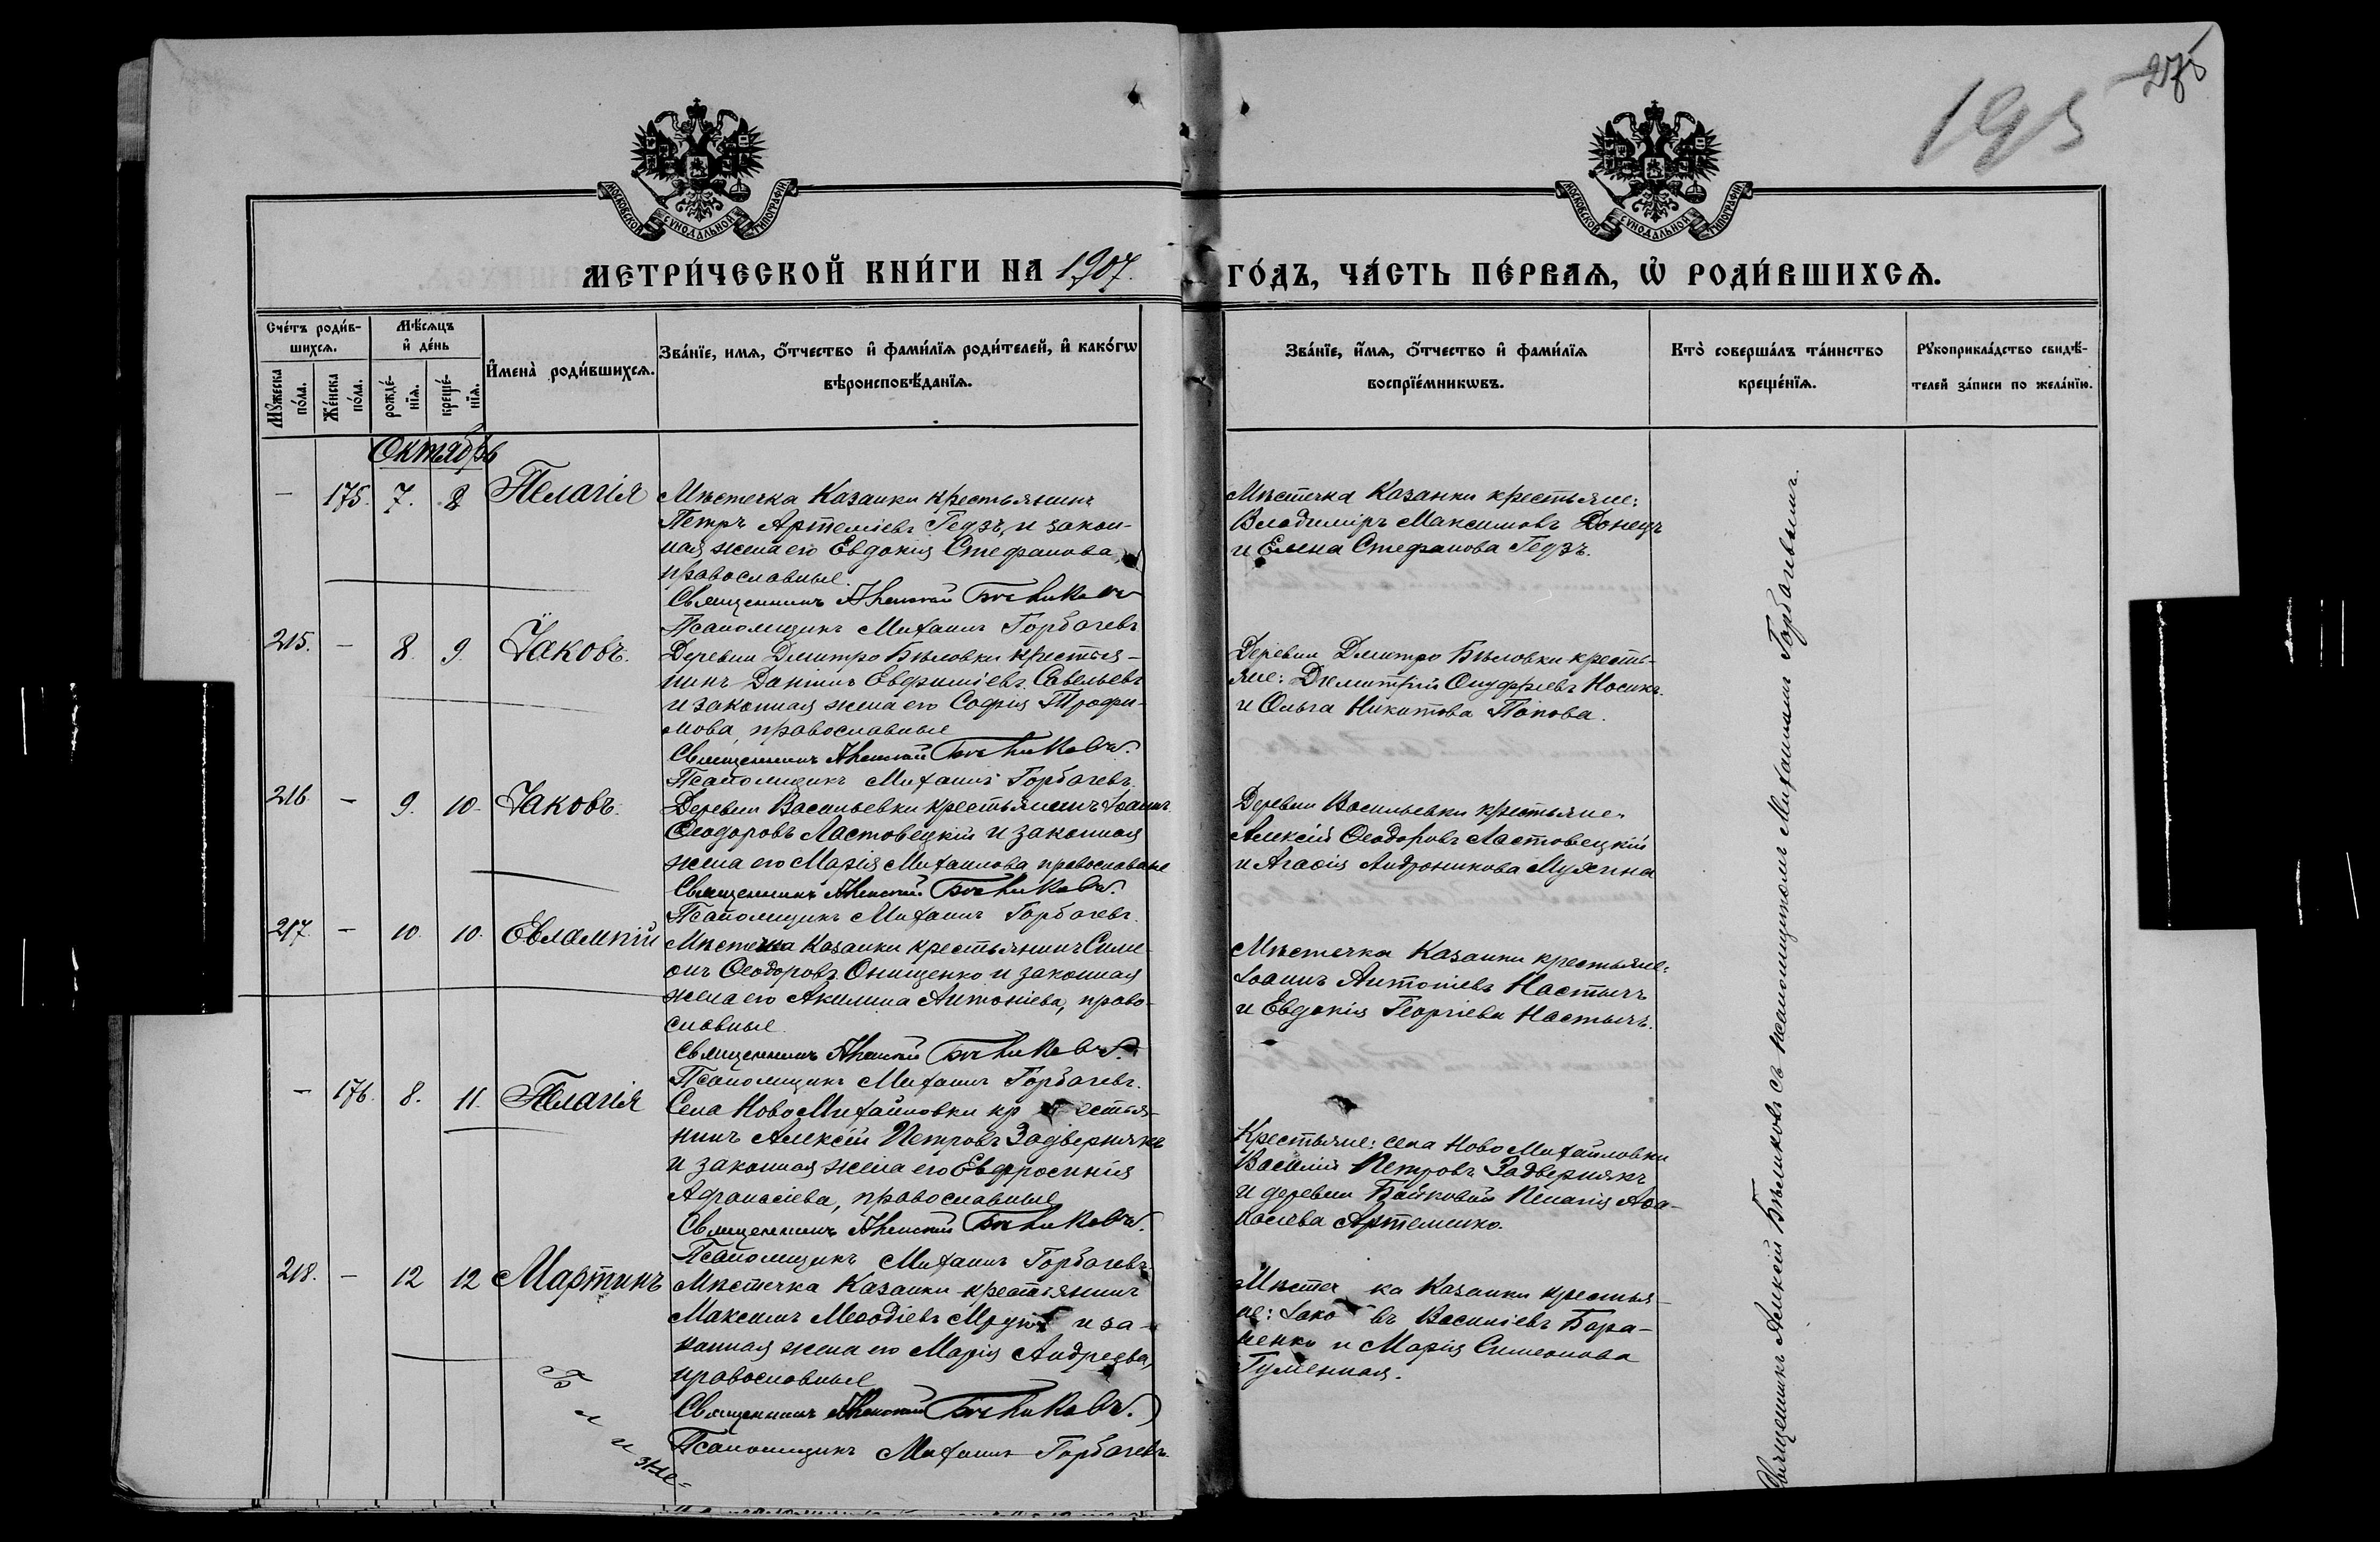 275
195
МОСКОВСКОЙ СѴНОДАЛЬНОЙ ТИПОГРАФІИ.
МОСКОВСКОЙ СѴНОДАЛЬНОЙ ТИПОГРАФІИ.
МЕТРИ́ЧЕСКОЙ КНИ́ГИ НА 1907. ГО́ДЪ, ЧА́СТЬ ПЕ́РВАѦ, Ѽ РОДИ́ВШИХСѦ.
Сче́тъ роди́в-
шихсѧ.
Мꙋжеска по́ла.
Же́нска по́ла.
Мѣ́сѧцъ
и҆ де́нь
рожде́-
нїѧ.
креще́-
нїѧ.
И҆мена̀ роди́вшихсѧ.
Зва́нїе, имѧ, ѻ҆́тчество и҆ фами́лїѧ роди́телей, и҆ како́гѡ
вѣроисповѣ́данїѧ.
Зва́нїе, и҆́мѧ, ѻ҆́тчество и҆ фами́лїѧ
воспрїе́мникѡвъ.
Кто̀ соверша́лъ та́инство
креще́нїѧ.
Рꙋкоприкла́дство свидѣ́-
телей за́писи по жела́нїю.
Октябрь
– 175. 7. 8 Пелагія
Мѣстечка Казанки крестьянинъ
Петръ Артеміевъ Гедзъ, и закон-
ная жена его Евдокія Стефанова
православные.
Священникъ Алексій Бѣликовъ
Псаломщикъ Михаилъ Горбачевъ
Мѣстечка Казанки крестьяне:
Владиміръ Максимовъ Донецъ
и Елена Стефанова Гедзъ.
215. – 8. 9. Іаковъ.
Деревни Дмитро Бѣловки крестья-
нинъ Даніилъ Евфиміевъ Савельевъ
и законная жена его Софія Трофи-
мова, православные
Священникъ Алексій Бѣликовъ.
Псаломщикъ Михаилъ Горбачевъ.
Деревни Дмитро Бѣловки кресть-
яне: Димитрій Онуфріевъ Носикъ.
и Ольга Никитова Попова.
216. – 9. 10. Іаковъ.
Деревни Васильевки крестьянинъ Іоаннъ
Ѳеодоровъ Ластовецкій и законная
жена его Марія Михаилова православные
Священникъ Алексій Бѣликовъ.
Псаломщикъ Михаилъ Горбачевъ.
Деревни Васильевки крестьяне
Алексій Ѳеодоровъ Ластовецкій
и Агаѳія Андроникова
217. – 10. 10. Евлампій
Мѣстечка Казанки крестьянинъ Симе-
онъ Ѳеодоровъ Онищенко и законная
жена его Акилина Антоніева, право-
славные
Священникъ Алексій Бѣликовъ.
Псаломщикъ Михаилъ Горбачевъ.
Мѣстечка Казанки крестьяне:
Іоаннъ Антоніевъ Настычъ
и Евдокія Георгіева Настычъ.
– 176. 8. 11. Пелагія
Села Ново Михайловки крестья-
нинъ Алексій Петровъ Задвернякъ
и законная жена его Евфросинія
Афанасіева, православные
Священникъ Алексій Бѣликовъ.
Псаломщикъ Михаилъ Горбачевъ.
Крестьяне: села Ново Михайловки
Василій Петровъ Задвернякъ
и деревни Пелагія Аѳа-
насіева Артеменко.
218. – 12 12 Мартинъ
Мѣстечка Казанки крестьянинъ
Максимъ Меѳодіевъ и за-
конная жена его Марія Андреева,
православные
Священникъ Алексій Бѣликовъ.
Псаломщикъ Михаилъ Горбачевъ.
Мѣстечка Казанки крестья-
не: Іаковъ Василіевъ Бара-
ненко и Марія Симеонова
Гуменная.
Близне-
Священникъ Алексій Бѣликовъ съ псаломщикомъ Михаиломъ Горбачевымъ.